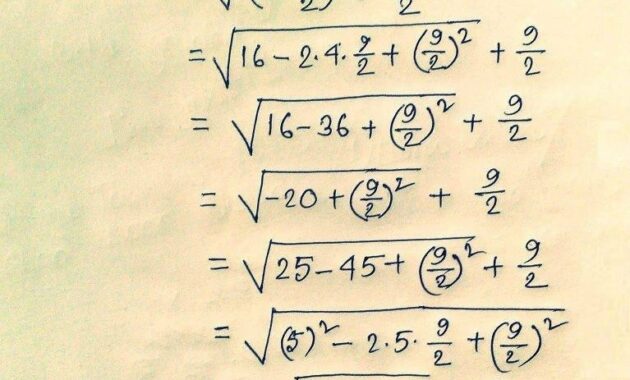 = √(16 - 2·4·9/2 + (9/2)²) + 9/2
= √(16 - 36 + (9/2)²) + 9/2
= √(-20 + (9/2)²) + 9/2
= √(25 - 45 + (9/2)²) + 9/2
= √((5)² - 2·5·9/2 + (9/2)²)